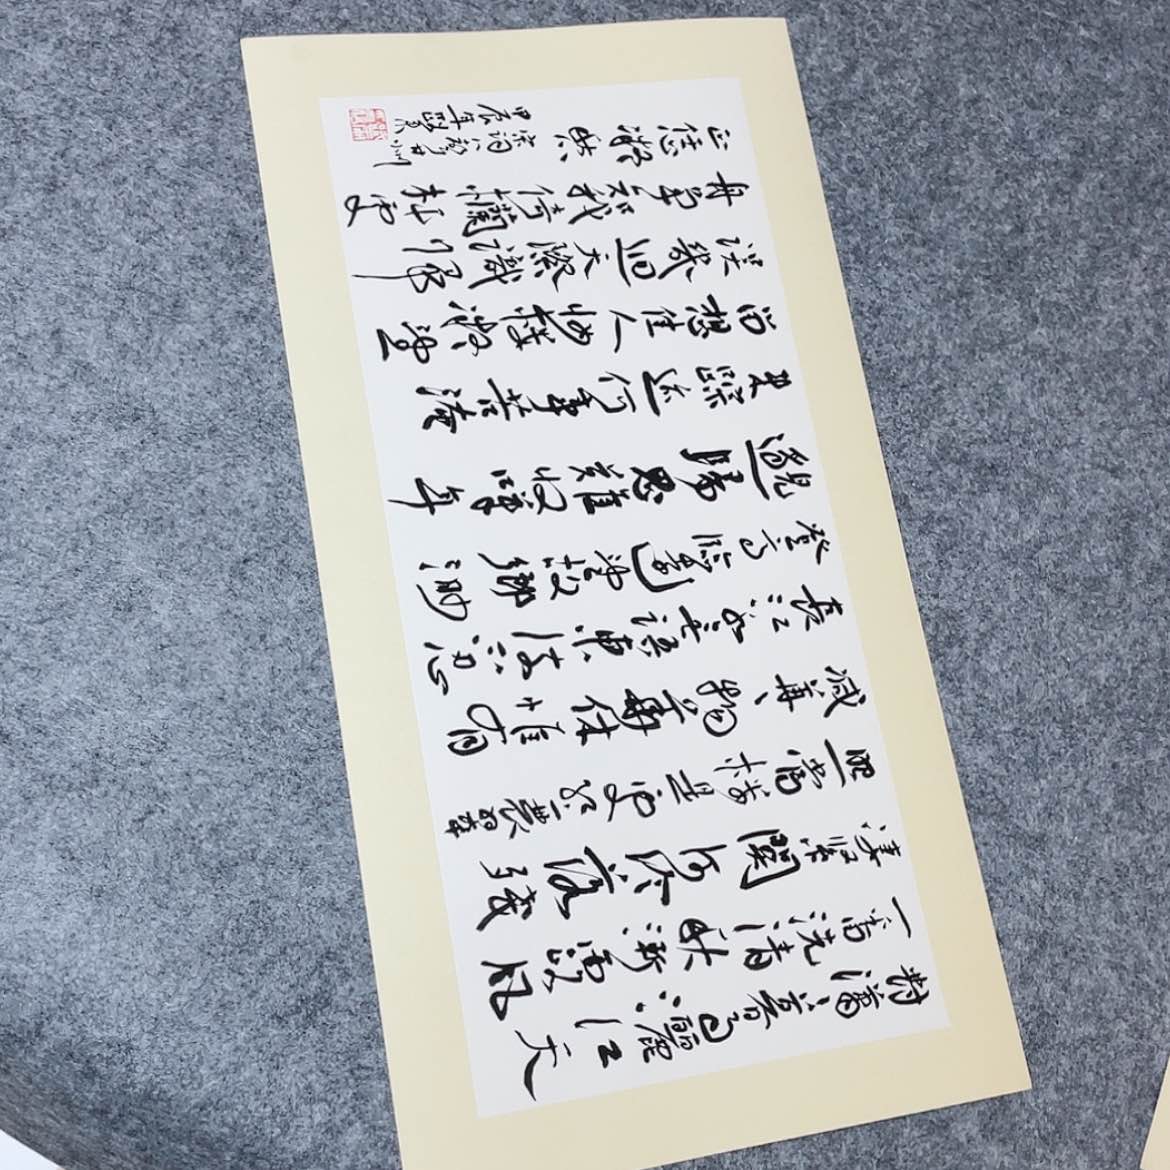 對瀟〻暮雨灑江天
一番洗清秋漸霜風
淒緊關河冷落殘
照當樓是處紅衰翠
減苒〻物華休惟有
長江水無語東流不忍
登高臨遠望故鄉渺
邈歸思難收嘆年
來蹤迹何事苦淹
留想佳人妝樓顒望
誤幾回天際識歸
舟爭知我倚闌杆處
正恁凝愁
宋詞八聲甘州
甲辰年